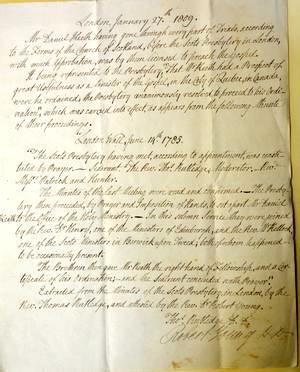 London, January 27.th 1809.
Mr Daniel Keith having gone through every part of Trials, according
to the Forms of the Church of Scotland, before the Scots Presbytery in London,
with much Approbation, was by them licensed to preach the gospel.
It being represented to the Presbytery, that Mr Keith had a Prospect of
great Usefulness as a Minister of the gospel, in the City of Quebec, in Canada,
were he ordained, the Presbytery unanimously resolved to proceed to his Ordi-
nation, which was carried into effect, as appears from the following Minute
of their proceedings.
London Wall, June 14th 1785.
"The Scots Presbytery having met, according to appointment, was consti-
tuted by Prayer. Sederunt. The Rev. Thos. Rutledge, Moderator, Rev.
and Hunter.
The Minutes of the last Meeting were read and confirmed. The Presby-
tery then proceeded, by Prayer and Imposition of Hands, to set apart Mr Daniel
Keith to the Office of the Holy Ministry. In this solemn Service they were joined
by the Rev. Dr Henry, one of the Ministers of Edinburgh, and the Rev.
one of the Scots Ministers in Berwick upon Tweed, both of whom happened
to be occasionally present.
The Brethren then gave Mr Keith the right hand of Fellowship, and a
of his Ordination, and the Sederunt concluded with Prayer."
Extracted from the Minutes of the Scots Presbytery in London, by the
Rev. Thomas Rutledge, and attested by the Rev. Dr Robert Young.
Thos. Rutledge
Robert Young